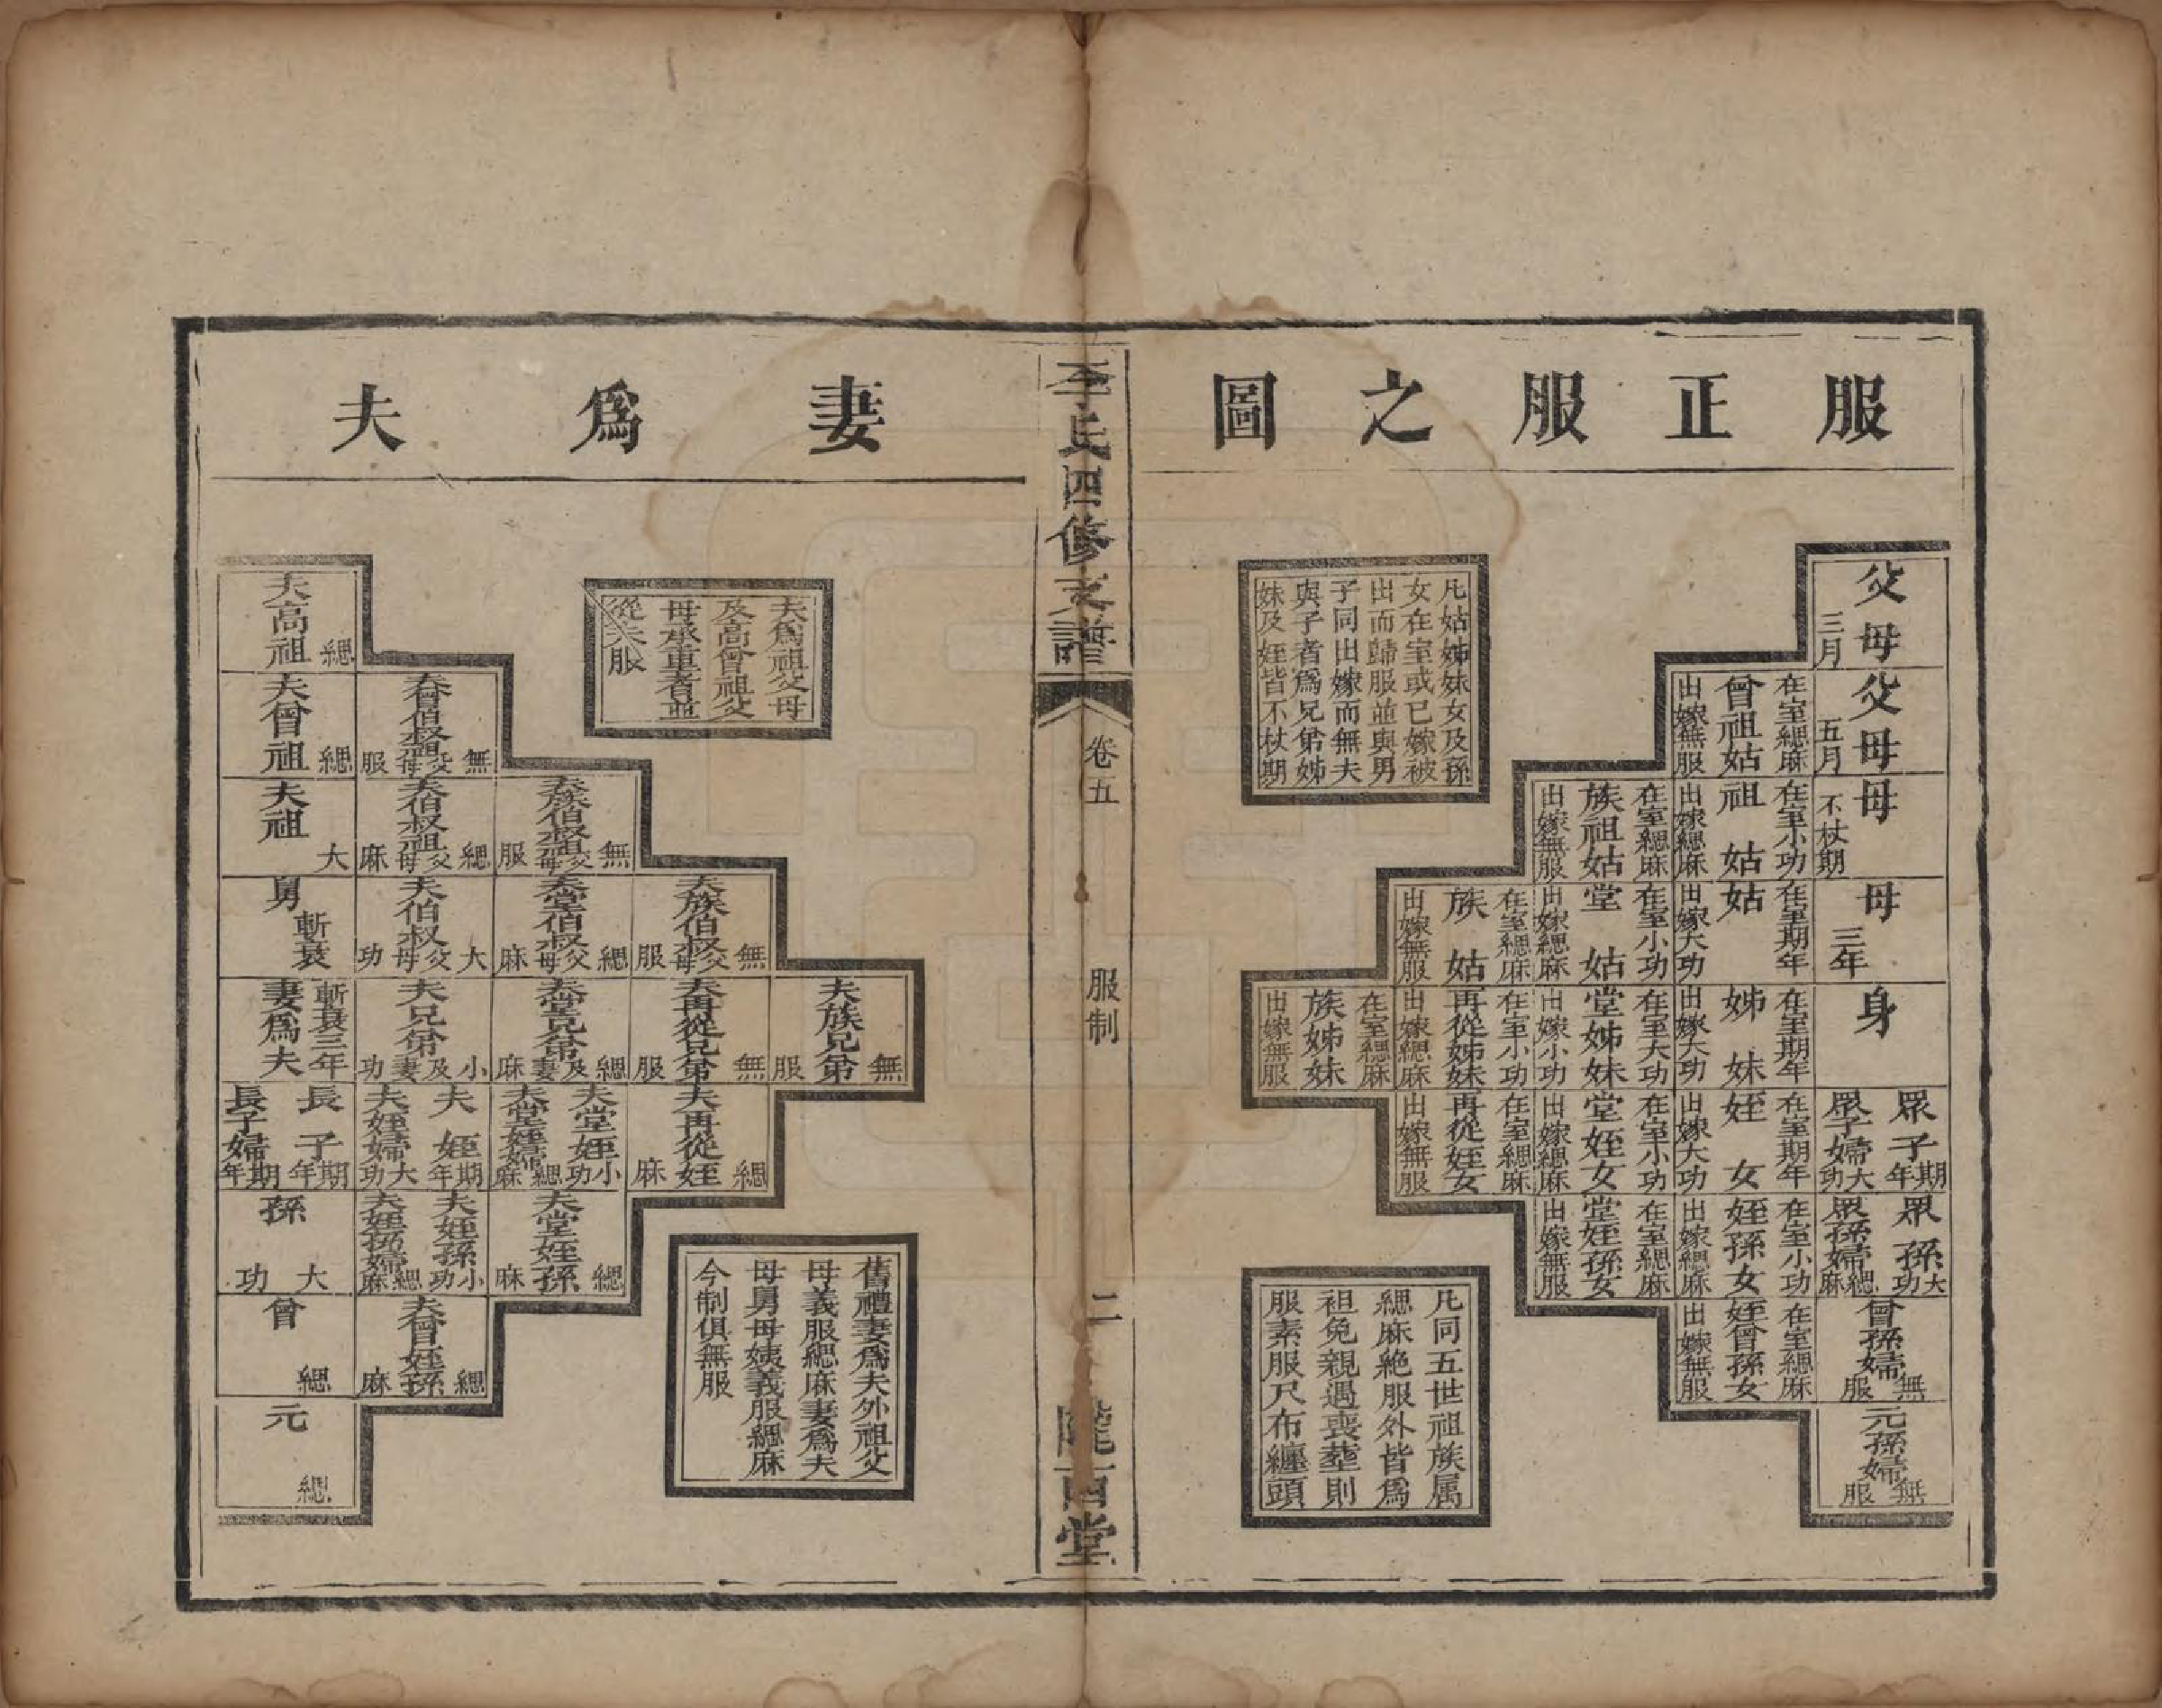 服正服之圖
父母
三月
父母
五月
母
不杖期
母
三年
身
眾子
期年
眾子婦
大功
眾孫
大功
眾孫婦
緦麻
曾孫婦
無服
元孫婦
無服
在室緦麻
曾祖姑
出嫁無服
在室小功
祖姑
出嫁緦麻
在室期年
姑
出嫁大功
在室期年
姊妹
出嫁大功
在室期年
姪女
出嫁大功
在室小功
姪孫女
出嫁緦麻
在室緦麻
姪曾孫女
出嫁無服
在室緦麻
族祖姑
出嫁無服
在室小功
堂姑
出嫁緦麻
在室大功
堂姊妹
出嫁小功
在室小功
堂姪女
出嫁緦麻
在室緦麻
堂姪孫女
出嫁無服
在室緦麻
族姑
出嫁無服
在室小功
再從姊妹
出嫁緦麻
在室緦麻
再從姪女
出嫁無服
在室緦麻
族姊妹
出嫁無服
凡姑姊妹女及孫
女在室或已嫁被
出而歸服並與男
子同出嫁而無夫
與子者為兄弟姊
妹及姪皆不杖期
凡同五世祖族属
緦麻絶服外皆爲
袒免親遇喪塟則
服素服尺布纏頭
李氏四修支譜
卷五
服制
二
隴西堂
妻爲夫
夫爲祖父母
及高曾祖父
母承重者並
從夫服
舊禮妻爲夫外祖父
母義服緦麻妻爲夫
母舅母姨義服緦麻
今制俱無服
夫族兄弟
無服
夫族伯叔父母
無服
夫再從兄弟
無服
夫再從姪
緦麻
夫族伯叔祖父母
無服
夫堂伯叔父母
緦麻
夫堂兄弟及妻
緦麻
夫堂姪
小功
夫堂姪婦
緦麻
夫堂姪孫
緦麻
夫曾伯叔祖父母
無服
夫伯叔祖父母
緦麻
夫伯叔父母
大功
夫兄弟及妻
小功
夫姪
期年
夫姪婦
大功
夫姪孫
小功
夫姪孫婦
緦麻
夫曾姪孫
緦麻
夫高祖
緦
夫曾祖
緦
夫祖
大
舅
斬衰
斬衰三年
妻爲夫
長子
期年
長子婦
期年
孫
大功
曾
緦
元
緦